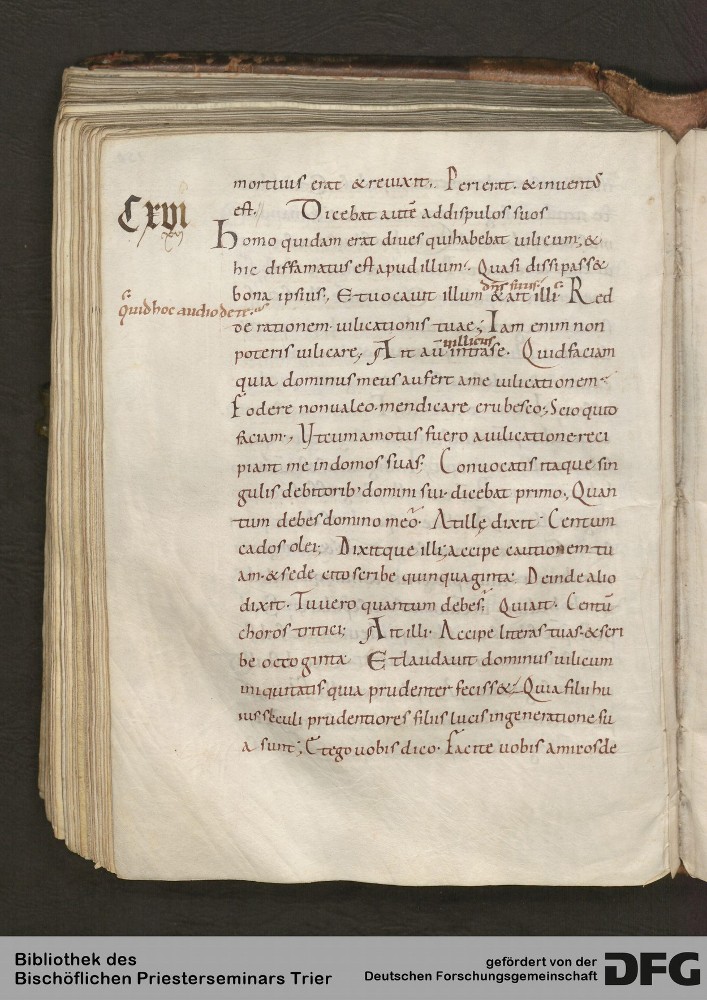 Cxvi
xvi
mortuus erat & reuixit. Perierat. & inuent9
est. Dicebat autē ad dispulos suos
Homo quidam erat diues qui habebat uilicum; &
hic diffamatus est apud illum. Quasi dissipass&
dn̄s suus
bona ipsius. Et uocauit illum & ait illi. Red
quid hoc audio de te.
de rationem uilicationis tuae; Iam enim non
uillicus
poteris uilicare; Ait aū intra se. Quid faciam
quia dominus meus aufert a me uilicationem
Fodere non ualeo. mendicare erubesco; Scio quid
faciam; Ut cum amotus fuero a uilicatione reci
piant me in domos suas; Conuocatis itaque sin
gulis debitorib' domini sui. dicebat primo. Quan
tum debes domino meo. At ille dixit Centum
cados olei; Dixitque illi; accipe cautionem tu
am. & sede cito scribe quinquaginta Deinde alio
dixit. Tu uero quantum debes; Qui ait. Centū
choros tritici; Ait illi. Accipe literas tuas. & scri
be octoginta Et laudauit dominus uilicum
iniquitatis quia prudenter feciss& Quia filii hu
ius seculi prudentiores filiis lucis in generatione su
a sunt; Et ego uobis dico. Facite uobis amicos de
Bibliothek des
Bischöflichen Priesterseminars Trier
gefördert von der
Deutschen Forschungsgemeinschaft
DFG